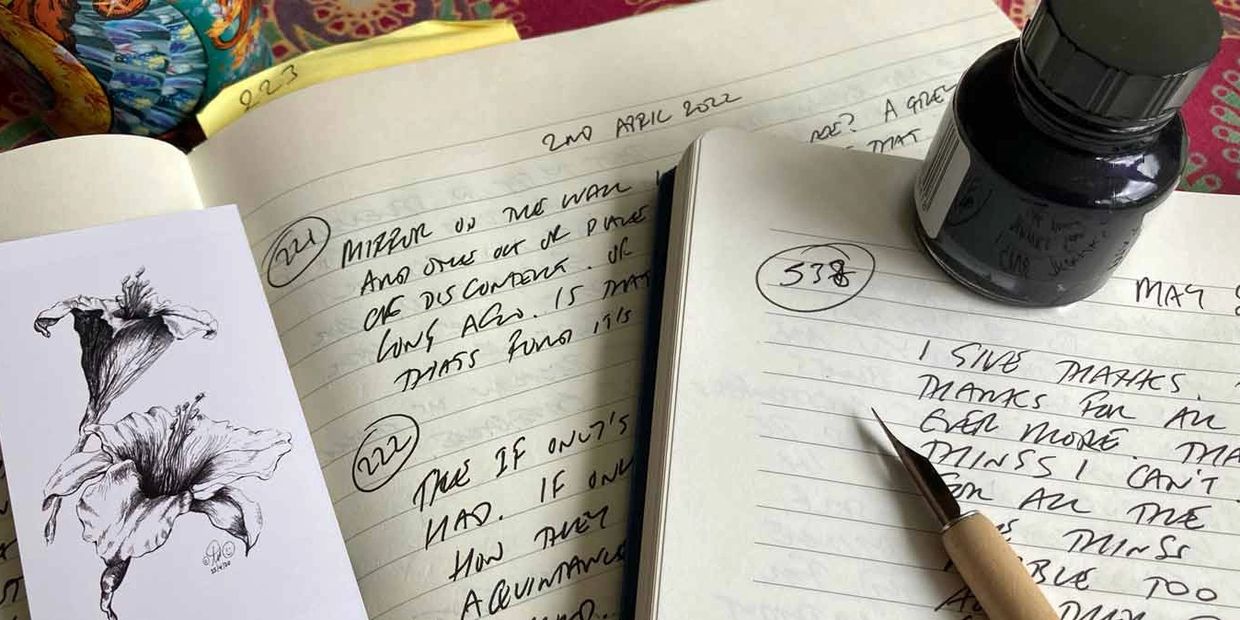 223
2ND APRIL 2022
221
MIRROR ON THE WALL
AND ONCE OUT OF PLACE
OF DISCONTENT. OF
LONG AGO. IS THAT
THATS FOUND IT'S
222
THE IF ONLY'S
HAD. IF ONLY
HOW THEY
ACQUINTANCE
HAD..
A GREY
THAT
538
MAY
I GIVE THANKS.
THANKS FOR ALL
EVER MORE. THA
THINGS I CAN'T
FOR ALL THE
THINGS
BLE TOO